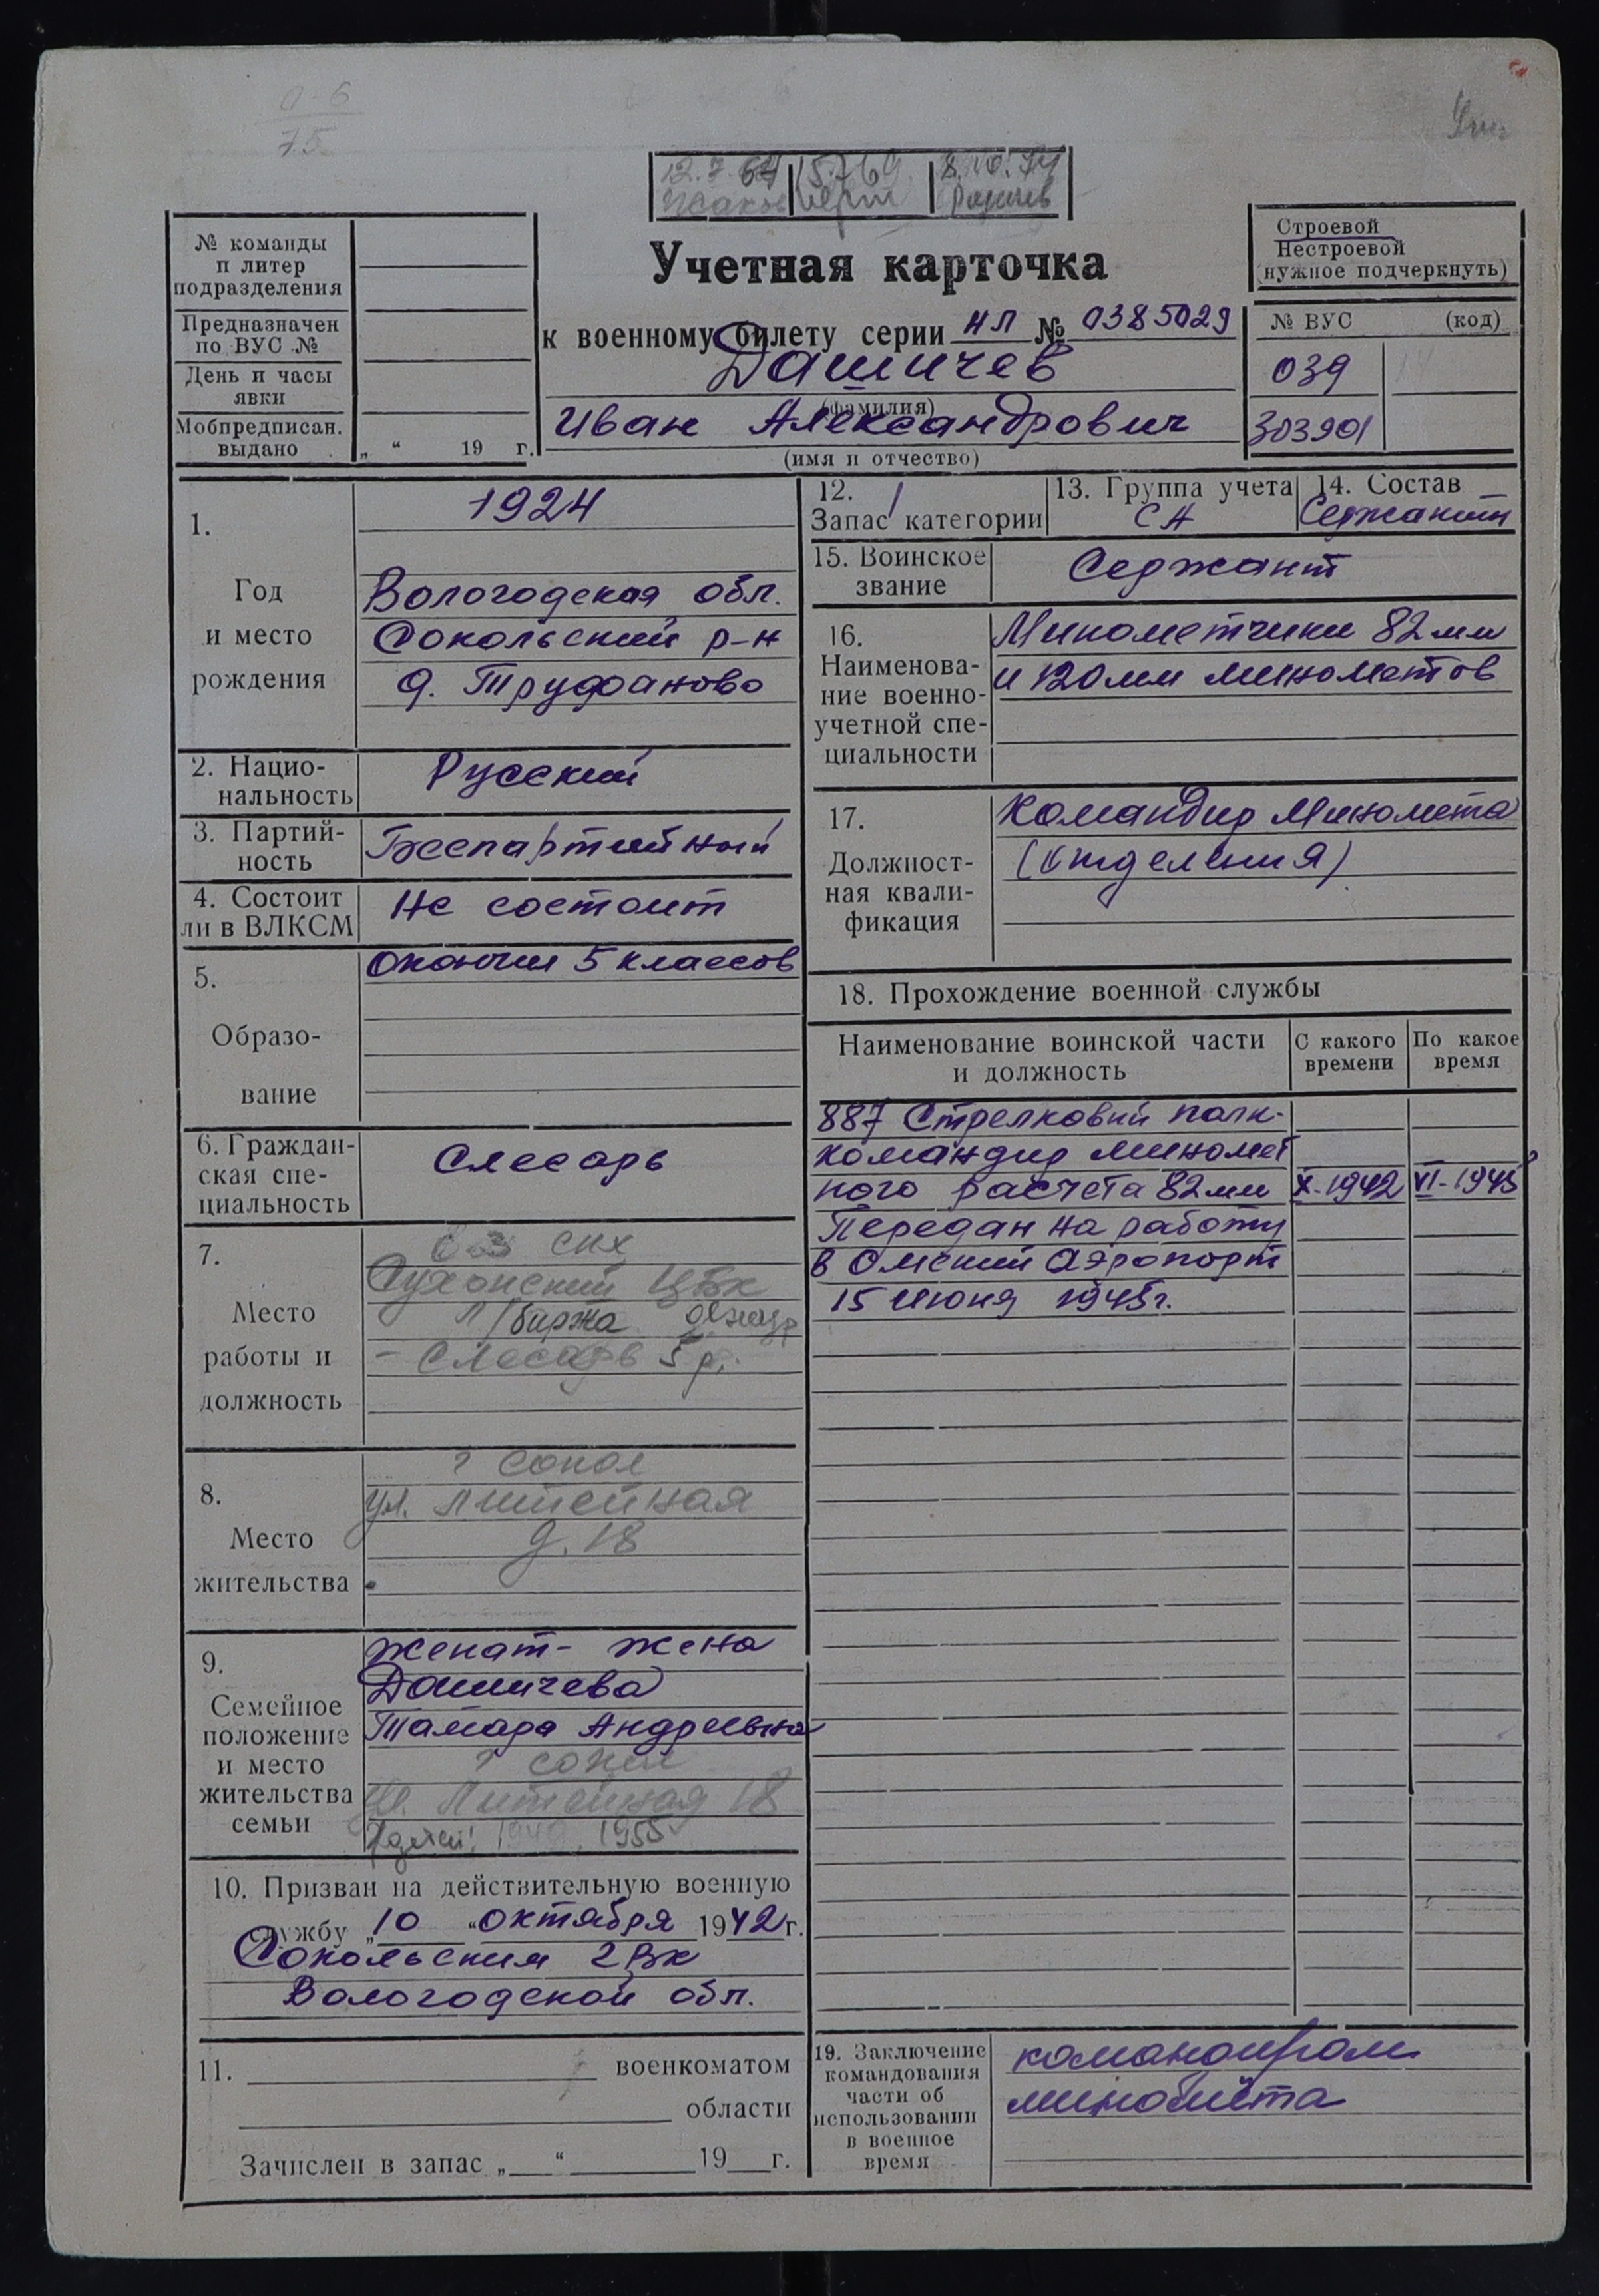 0-6
75
12.7.67 15.7.69 8.10.74
Учетная карточка
к военному билету серии НЛ № 0385029
Дашичев
(фамилия)
Иван Александрович
(имя и отчество)
№ команды
и литер
подразделения
Предназначен
по ВУС №
День и часы
явки
Мобпредписан.
выдано
„ “ 19 г.
Строевой
Нестроевой
(нужное подчеркнуть)
№ ВУС (код)
039
303901
1.
Год
и место
рождения
1924
Вологодская обл.
Сокольский р-н
д. Труфаново
2. Нацио-
нальность
Русский
3. Партий-
ность
Беспартийный
4. Состоит
ли в ВЛКСМ
Не состоит
5.
Образо-
вание
Окончил 5 классов
6. Граждан-
ская спе-
циальность
Слесарь
7.
Место
работы и
должность
Сухонский ЦБК
л/биржа
- слесарь 5 р.
8.
Место
жительства
г Сокол
ул. Литейная
д. 18
9.
Семейное
положение
и место
жительства
семьи
женат - жена
Дашичева
Тамара Андреевна
г Сокол
ул. Литейная 18
детей: 1949, 1955
10. Призван на действительную военную
службу „10 “ октября 1942 г.
Сокольским РВК
Вологодской обл.
11. военкоматом
области
Зачислен в запас „ “ 19 г.
12. 1
Запас категории
13. Группа учета
СА
14. Состав
Сержанты
15. Воинское
звание
Сержант
16.
Наименова-
ние военно-
учетной спе-
циальности
Минометчики 82 мм
и 120 мм минометов
17.
Должност-
ная квали-
фикация
Командир миномета
(отделения)
18. Прохождение военной службы
Наименование воинской части
и должность
С какого
времени
По какое
время
887 Стрелковый полк -
командир миномет
ного расчета 82 мм X-1942 VI-1945
Передан на работу
в Омский Аэропорт
15 июня 1945 г.
19. Заключение
командования
части об
использовании
в военное
время
командиром
миномёта